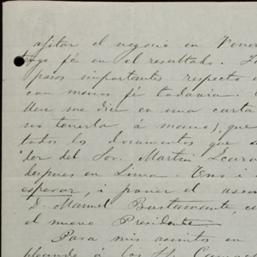 agitar el negocio en Vene
tengo fé en el resultado.
pasos importantes respecto
con menos fé todavia.
Ud. me dice en una carta
no tenerla á mano), que
todos los documentos que
der del Sor. Martin
despues en Lima.
esperar, i poner el asun
D. Manuel Bustamante, co
el nuevo Presidente
Para mis asuntos en